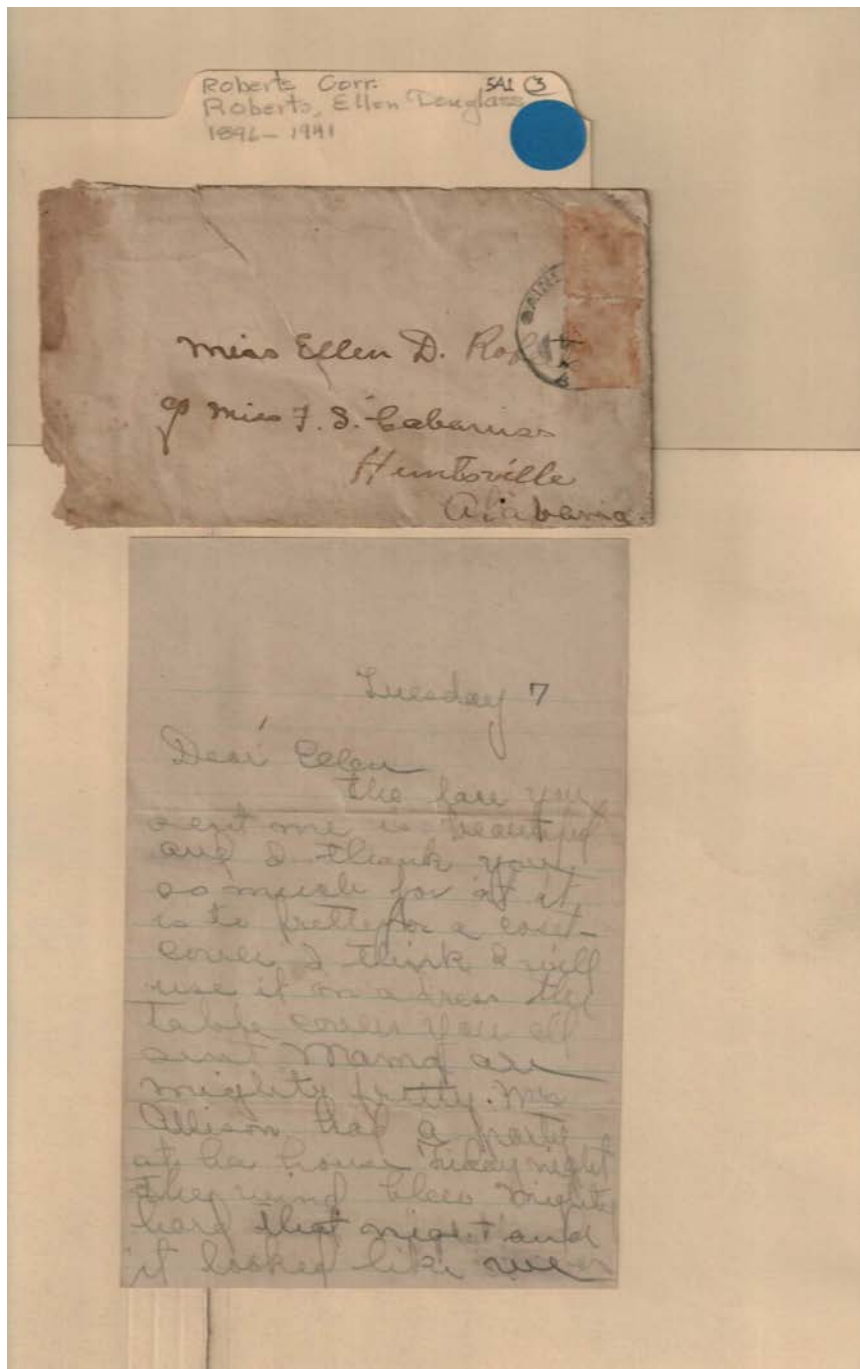 Roberts Corr. 5A1 (3)
Roberts, Ellen Douglass
1896-1941
Miss Ellen D.
c/o Miss F. S. Cabaniss
Huntsville
Alabama.
Tuesday 7
Dear Ellen
the you
sent me is beautiful
and I thank you
so much for it
is to pretty for a
cover I think I will
use it on a dress the
table cover you all
sent Mama are
mighty pretty. Mrs
Allison had a party
at her house Friday night
the wind blew mighty
hard that night and
it looked like